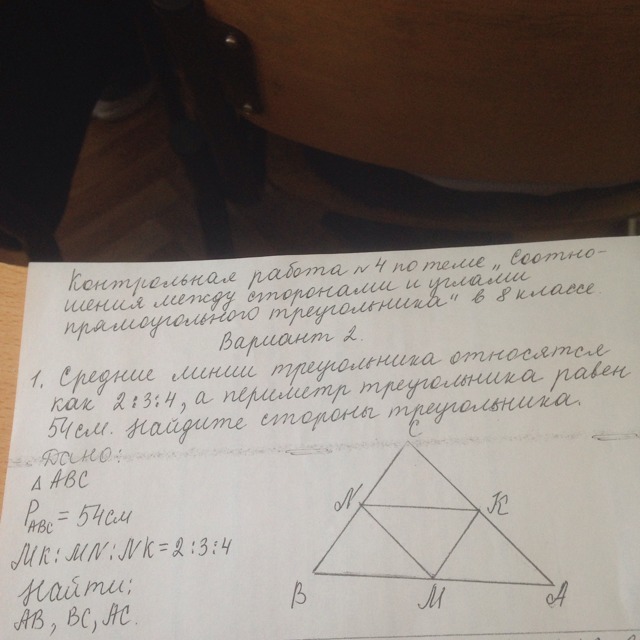 Контрольная работа №4 по теме „Соотно-
шения между сторонами и углами
прямоугольного треугольника" в 8 классе.
Вариант 2.
1. Средние линии треугольника относятся
как 2:3:4, а периметр треугольника равен
54см. Найдите стороны треугольника.
Дано:
△ ABC
P_ABC = 54см
MK:MN:NK=2:3:4
Найти:
AB, BC, AC.
C
N
K
B
M
A